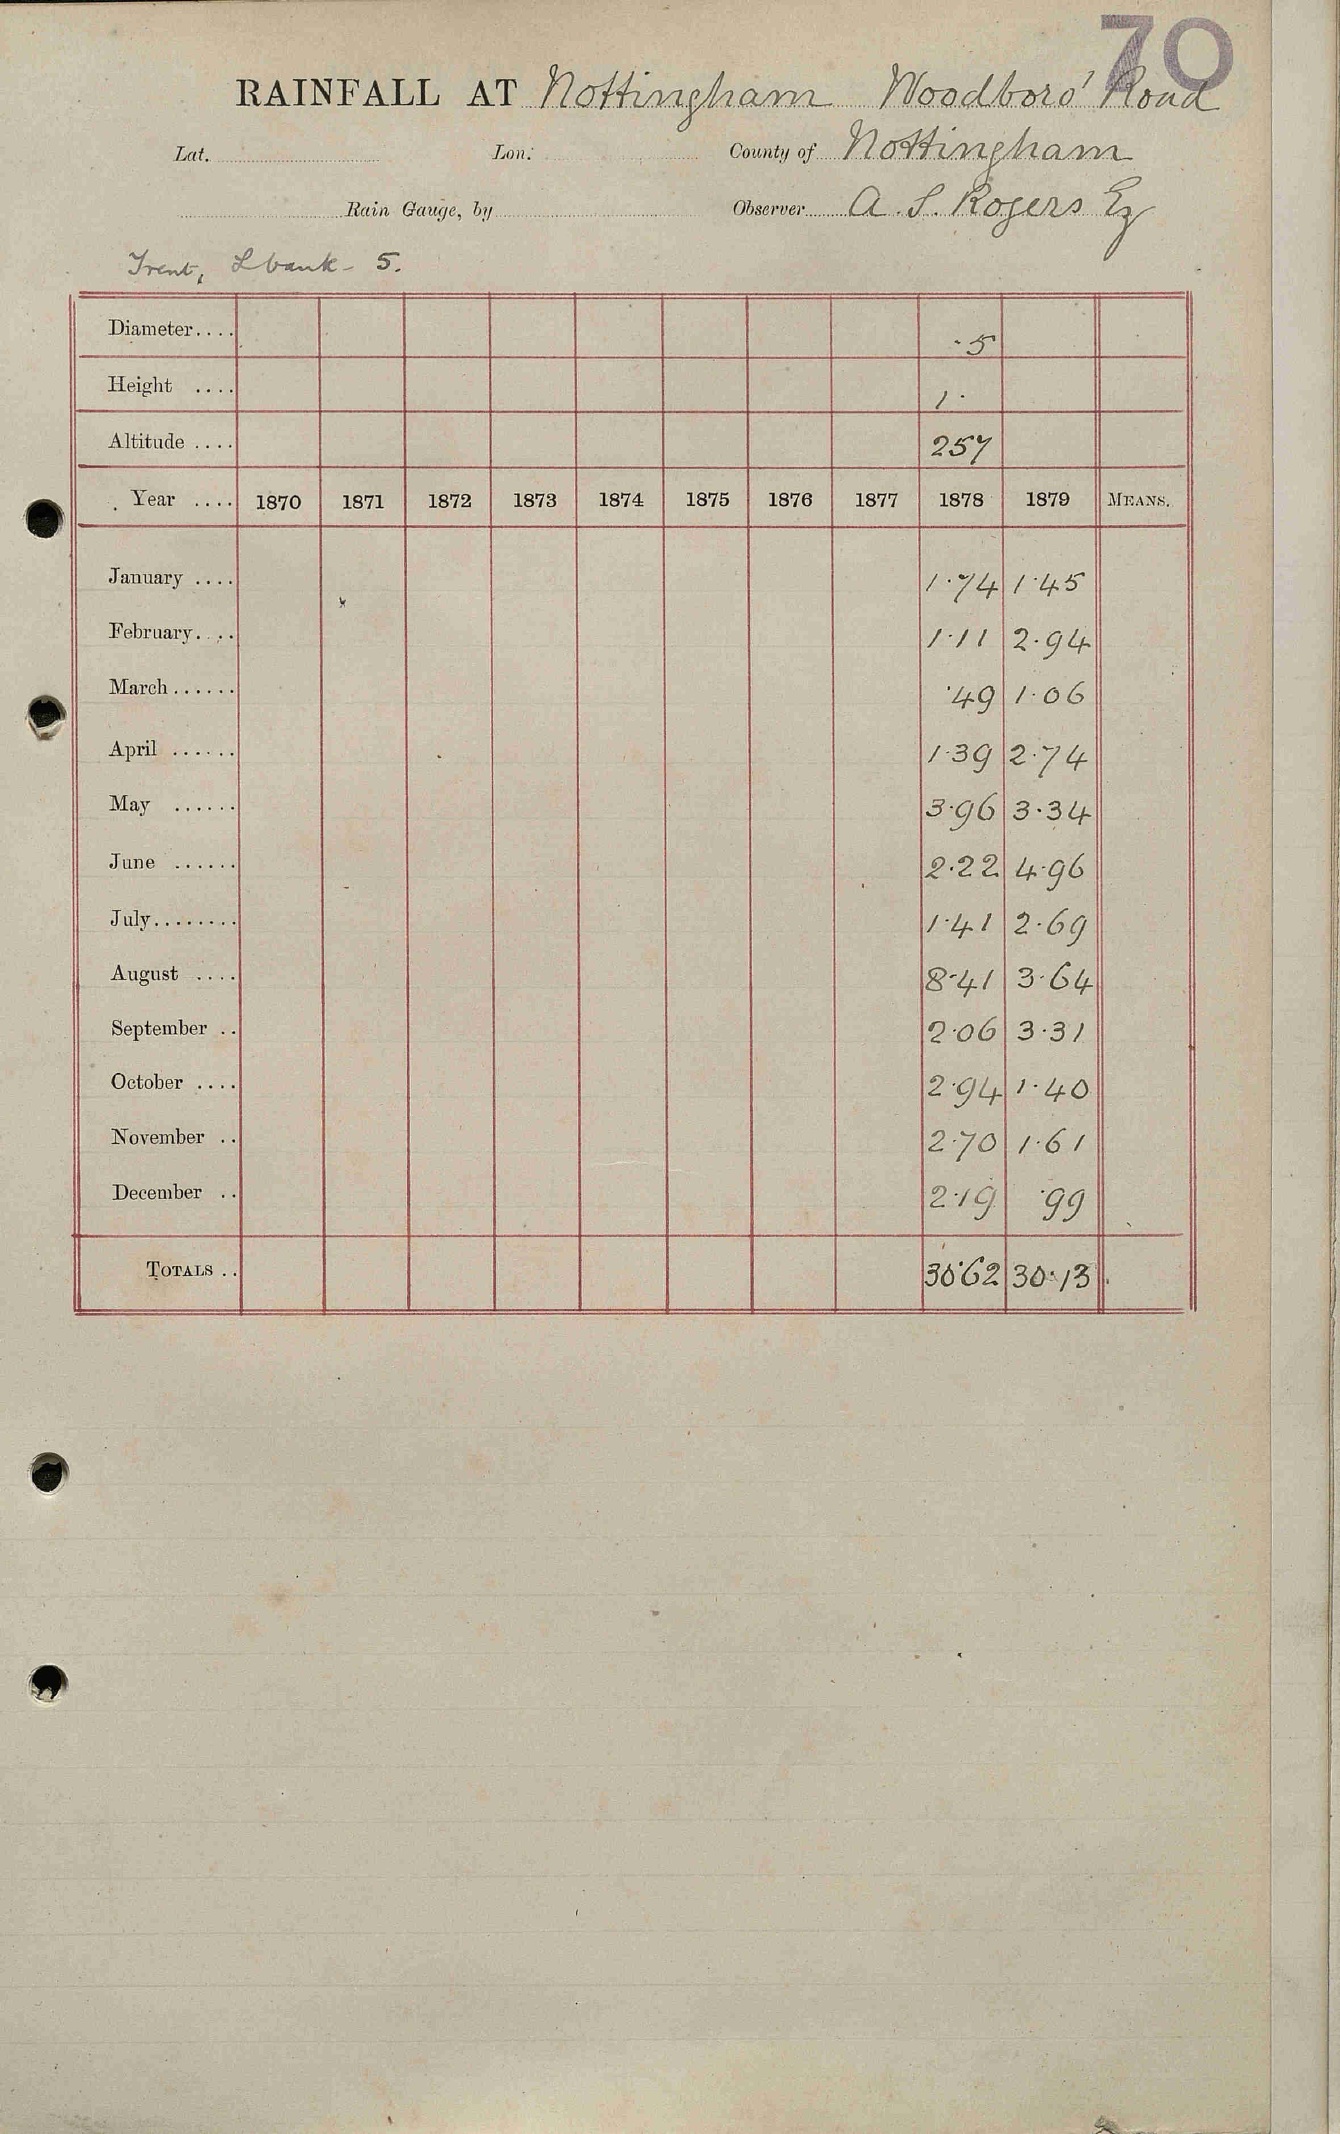 70
RAINFALL AT Nottingham Woodboro' Road
Lat. Lon. County of Nottingham
Rain Gauge, by Observer A. S. Rogers Eq
Trent, L bank - 5.
Diameter.... ·5
Height .... 1·
Altitude .... 257
Year .... 1870 1871 1872 1873 1874 1875 1876 1877 1878 1879 MEANS.
January .... 1·74 1·45
February.... 1·11 2·94
March...... ·49 1·06
April ...... 1·39 2·74
May ...... 3·96 3·34
June ...... 2·22 4·96
July........ 1·41 2·69
August .... 8·41 3·64
September .. 2·06 3·31
October .... 2·94 1·40
November .. 2·70 1·61
December .. 2·19 ·99
TOTALS .. 30·62 30·13